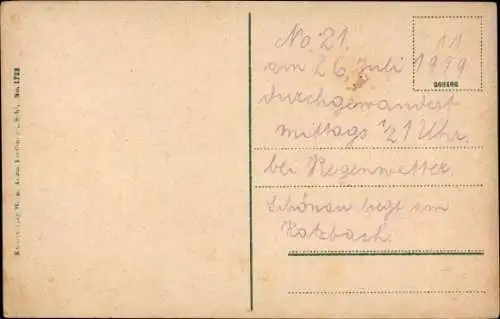 No. 21. 11
am 26. Juli 1919
durchgewandert
mittags 1/2 1 Uhr.
bei Regenwetter.
Schönau liegt am
Katzbach.
No. 1722